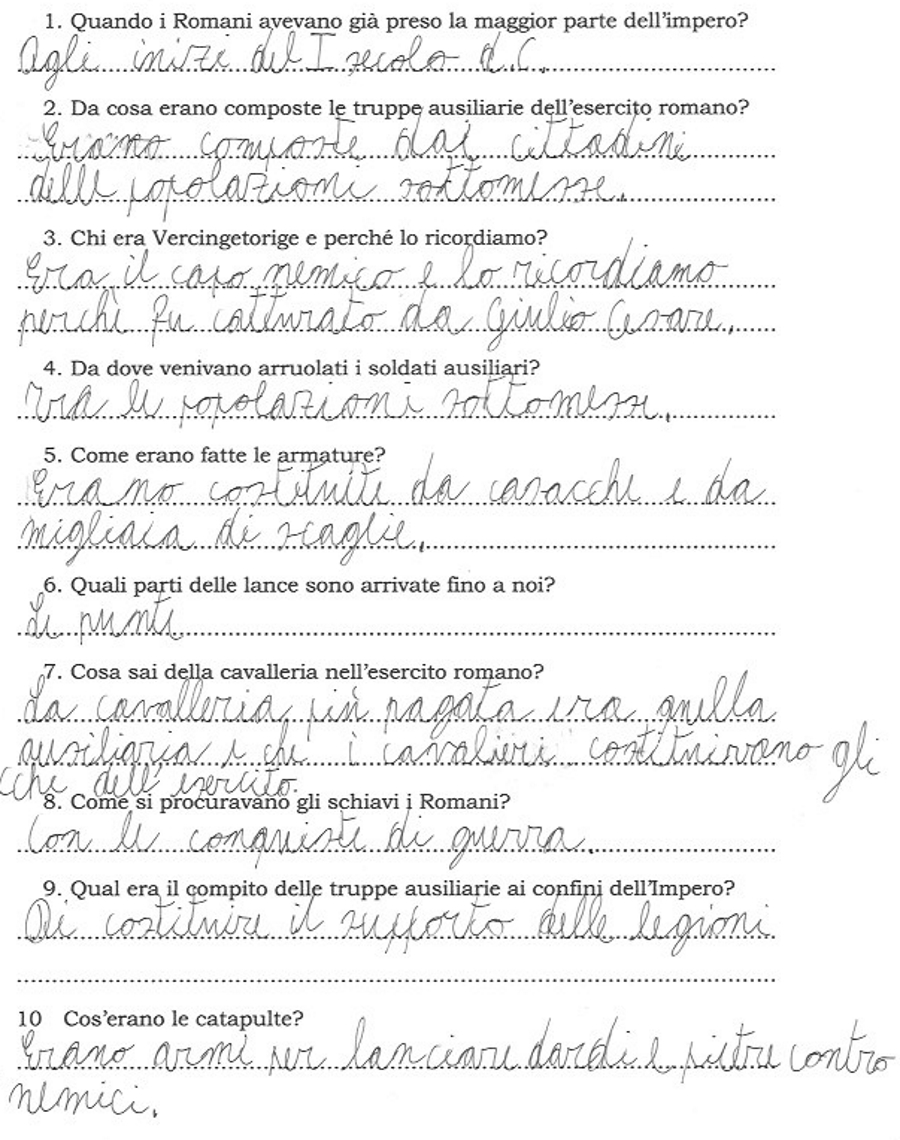 1. Quando i Romani avevano già preso la maggior parte dell'impero?
Agli inizi del I secolo d.C.
2. Da cosa erano composte le truppe ausiliarie dell'esercito romano?
Erano composte dai cittadini
delle popolazioni sottomesse.
3. Chi era Vercingetorige e perché lo ricordiamo?
Era il capo nemico e lo ricordiamo
perchè fu catturato da Giulio Cesare.
4. Da dove venivano arruolati i soldati ausiliari?
Tra le popolazioni sottomesse.
5. Come erano fatte le armature?
Erano costituite da casacche e da
migliaia di scaglie.
6. Quali parti delle lance sono arrivate fino a noi?
Le punte
7. Cosa sai della cavalleria nell'esercito romano?
La cavalleria più pagata era quella
ausiliaria e che i cavalieri costituivano gli
dell'esercito.
8. Come si procuravano gli schiavi i Romani?
Con le conquiste di guerra.
9. Qual era il compito delle truppe ausiliarie ai confini dell'Impero?
Di costituire il supporto delle legioni
10 Cos'erano le catapulte?
Erano armi per lanciare dardi e pietre contro
nemici.